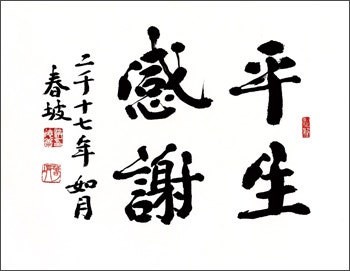 平生
感謝
二千十七年 如月
春坡